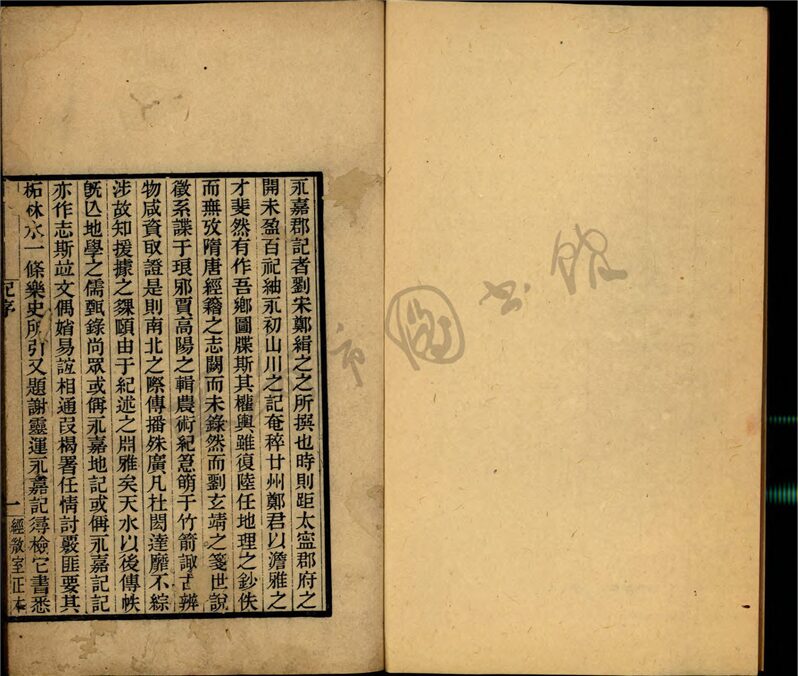 永嘉郡記者劉宋鄭緝之之所撰也時則距太寍郡府之
開未盈百祀紬永初山川之記奄稡廿州鄭君以澹雅之
才斐然有作吾鄉圖牒斯其權輿雖復陸任地理之鈔佚
而無攷隋唐經籍之志闕而未錄然而劉玄靖之箋世說
徵系諜于琅邪賈高陽之輯農術紀䈞萌于竹箭諏古辨
物咸資取證是則南北之際傳播殊廣凡杜閎達靡不綜
涉故知援據之夥頤由于紀述之淵雅矣天水以後傳帙
旣亾地學之儒甄錄尚眾或偁永嘉地記或偁永嘉記記
亦作志斯竝文偶媘易誼相通叚楬署任情討覈匪要其
柘林水一條樂史所引又題謝靈運永嘉記𢒫檢它書悉
記序
一
經㣲室正本
市圖書館